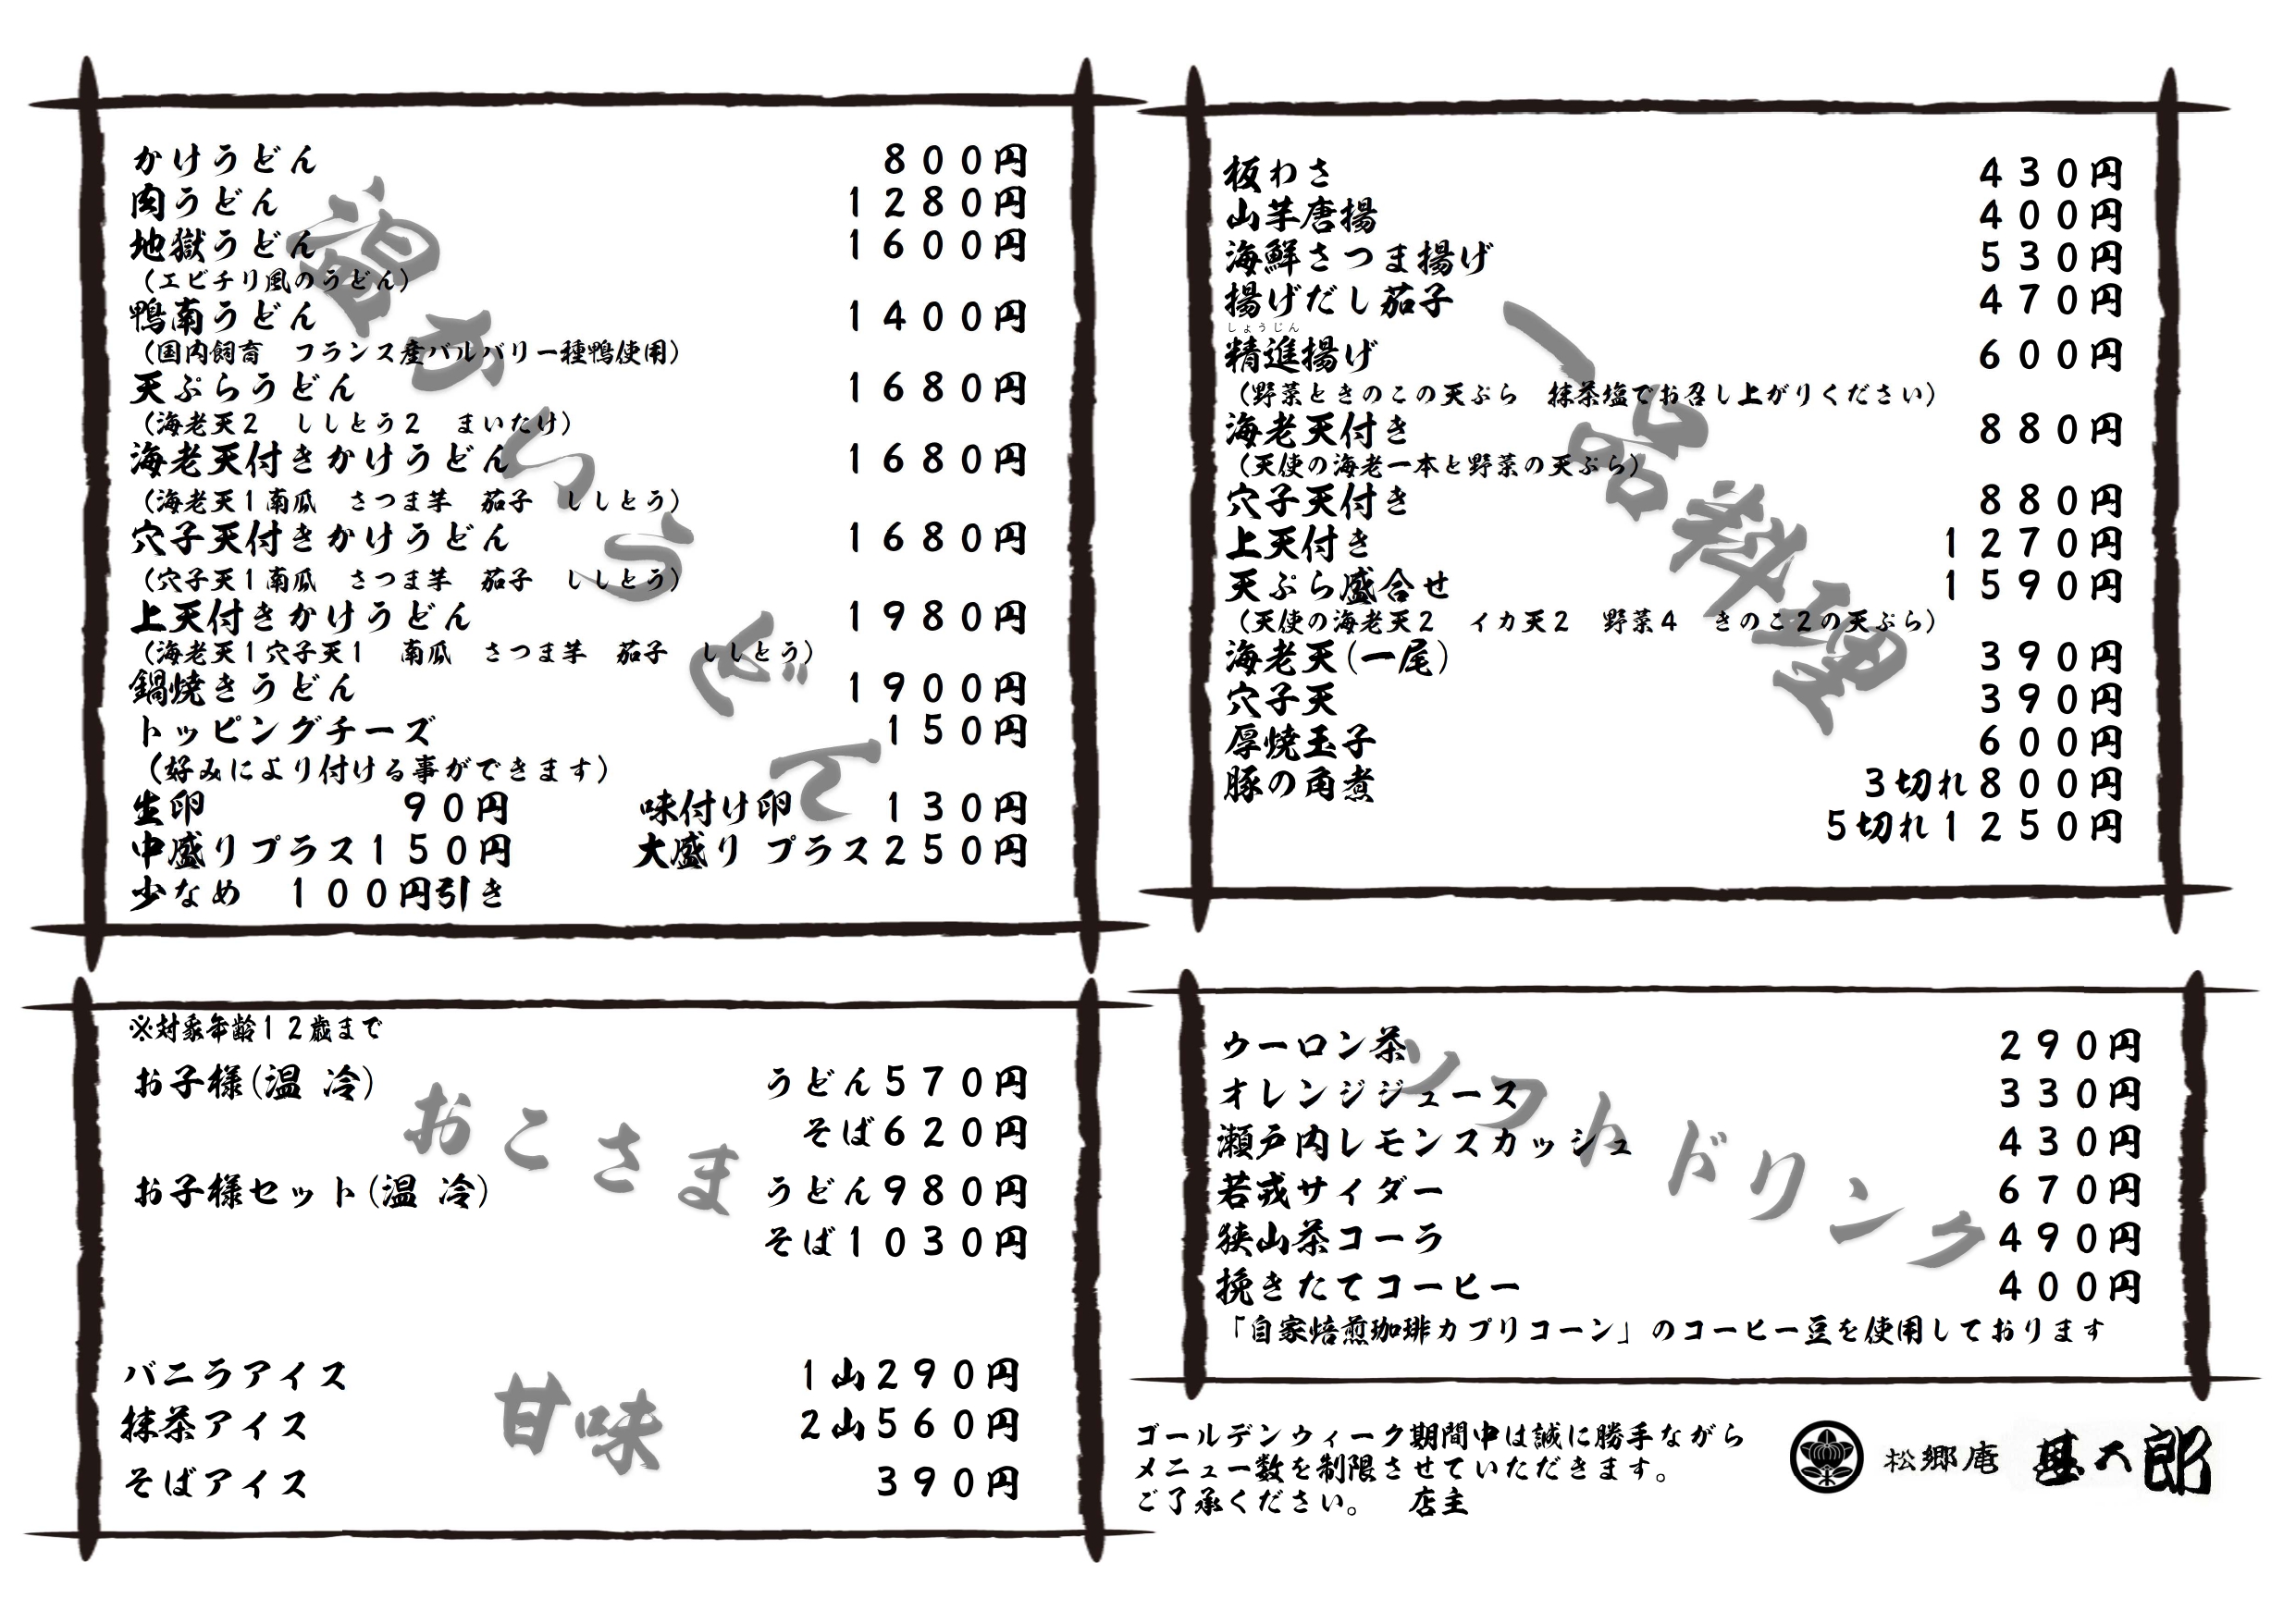 温かいうどん
かけうどん ８００円
肉うどん １２８０円
地獄うどん １６００円
（エビチリ風のうどん）
鴨南うどん １４００円
（国内飼育　フランス産バルバリー種鴨使用）
天ぷらうどん １６８０円
（海老天２　ししとう２　まいたけ）
海老天付きかけうどん １６８０円
（海老天１南瓜　さつま芋　茄子　ししとう）
穴子天付きかけうどん １６８０円
（穴子天１南瓜　さつま芋　茄子　ししとう）
上天付きかけうどん １９８０円
（海老天１穴子天１　南瓜　さつま芋　茄子　ししとう）
鍋焼きうどん １９００円
トッピングチーズ １５０円
（好みにより付ける事ができます）
生卵 ９０円 味付け卵 １３０円
中盛りプラス１５０円 大盛り プラス２５０円
少なめ　１００円引き
一品料理
板わさ ４３０円
山芋唐揚 ４００円
海鮮さつま揚げ ５３０円
揚げだし茄子 ４７０円
しょうじん
精進揚げ ６００円
（野菜ときのこの天ぷら　抹茶塩でお召し上がりください）
海老天付き ８８０円
（天使の海老一本と野菜の天ぷら）
穴子天付き ８８０円
上天付き １２７０円
天ぷら盛合せ １５９０円
（天使の海老天２　イカ天２　野菜４　きのこ２の天ぷら）
海老天(一尾) ３９０円
穴子天 ３９０円
厚焼玉子 ６００円
豚の角煮 ３切れ８００円
５切れ１２５０円
おこさま
※対象年齢１２歳まで
お子様(温 冷) うどん５７０円
そば６２０円
お子様セット(温 冷) うどん９８０円
そば１０３０円
甘味
バニラアイス １山２９０円
抹茶アイス ２山５６０円
そばアイス ３９０円
ソフトドリンク
ウーロン茶 ２９０円
オレンジジュース ３３０円
瀬戸内レモンスカッシュ ４３０円
若戎サイダー ６７０円
狭山茶コーラ ４９０円
挽きたてコーヒー ４００円
「自家焙煎珈琲カプリコーン」のコーヒー豆を使用しております
ゴールデンウィーク期間中は誠に勝手ながら
メニュー数を制限させていただきます。
ご了承ください。　店主
松郷庵 甚五郎